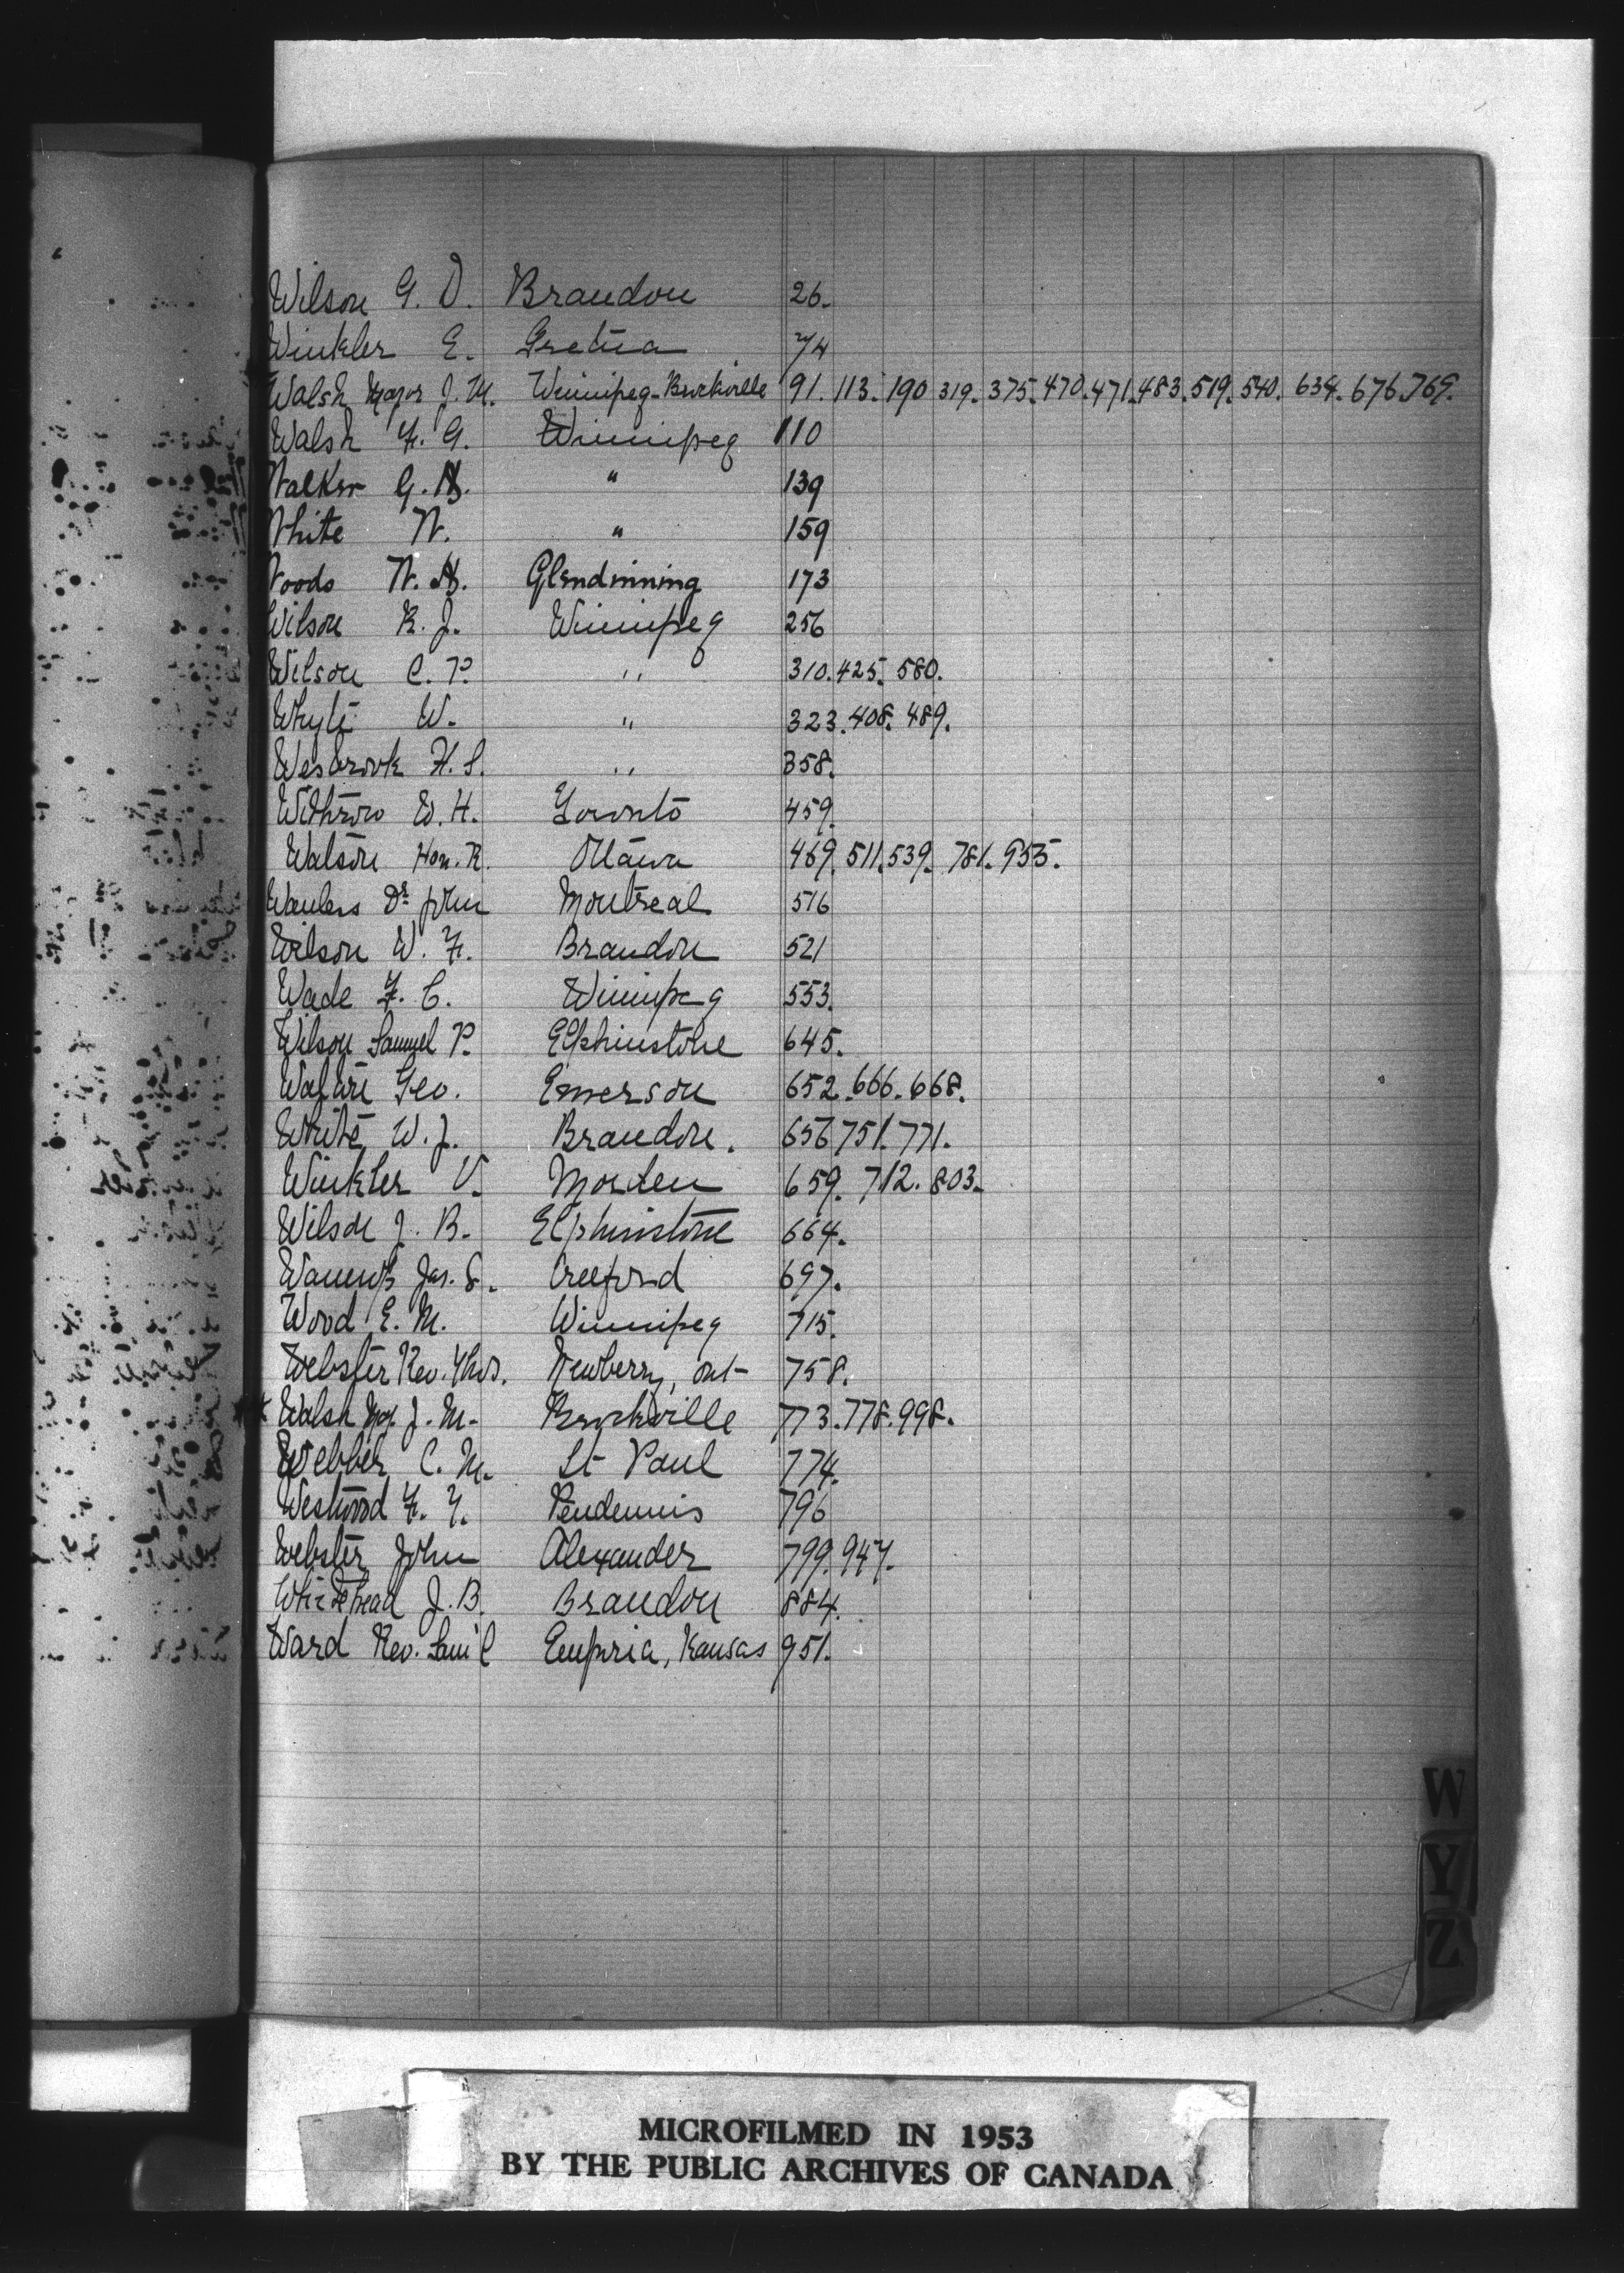 Wilson G. D. Brandon 26.
Winkler E. Gretna 74
Walsh Major J. M. Winnipeg-Brockville 91. 113. 190 319. 375. 470. 471. 483. 519. 540. 634. 676. 769.
Walsh F. G. Winnipeg 110
Walker G. H. " 139
White W. " 159
Woods W. H. Glendinning 173
Wilson R. J. Winnipeg 256
Wilson C. P. " 310. 425. 580.
Whyte W. " 323. 408. 489.
Wesbrook H. S. " 358.
Withrow W. H. Toronto 459.
Watson Hon. R. Ottawa 469. 511. 539. 781. 955.
Wanless Dr John Montreal 516
Wilson W. F. Brandon 521
Wade F. C. Winnipeg 553.
Wilson Samuel P. Elphinstone 645.
Geo. Emerson 652. 666. 668.
White, W. J. Brandon. 656 751. 771.
Winkler V. Morden 659. 712. 803.
Wilson J. B. Elphinstone 664.
Jas. S. Creeford 697.
Wood E. M. Winnipeg 715.
Webster Rev. Thos. Newberry, Ont 758.
Walsh Maj J. M. Brockville 773. 778. 998.
Webber C. M. St Paul 774.
Westwood F. Y. Pendennis 796
Webster John Alexander 799. 947.
Whitehead J. B. Brandon 884.
Ward Rev. Sam'l Emporia, Kansas 951.
W
Y
Z
MICROFILMED IN 1953
BY THE PUBLIC ARCHIVES OF CANADA